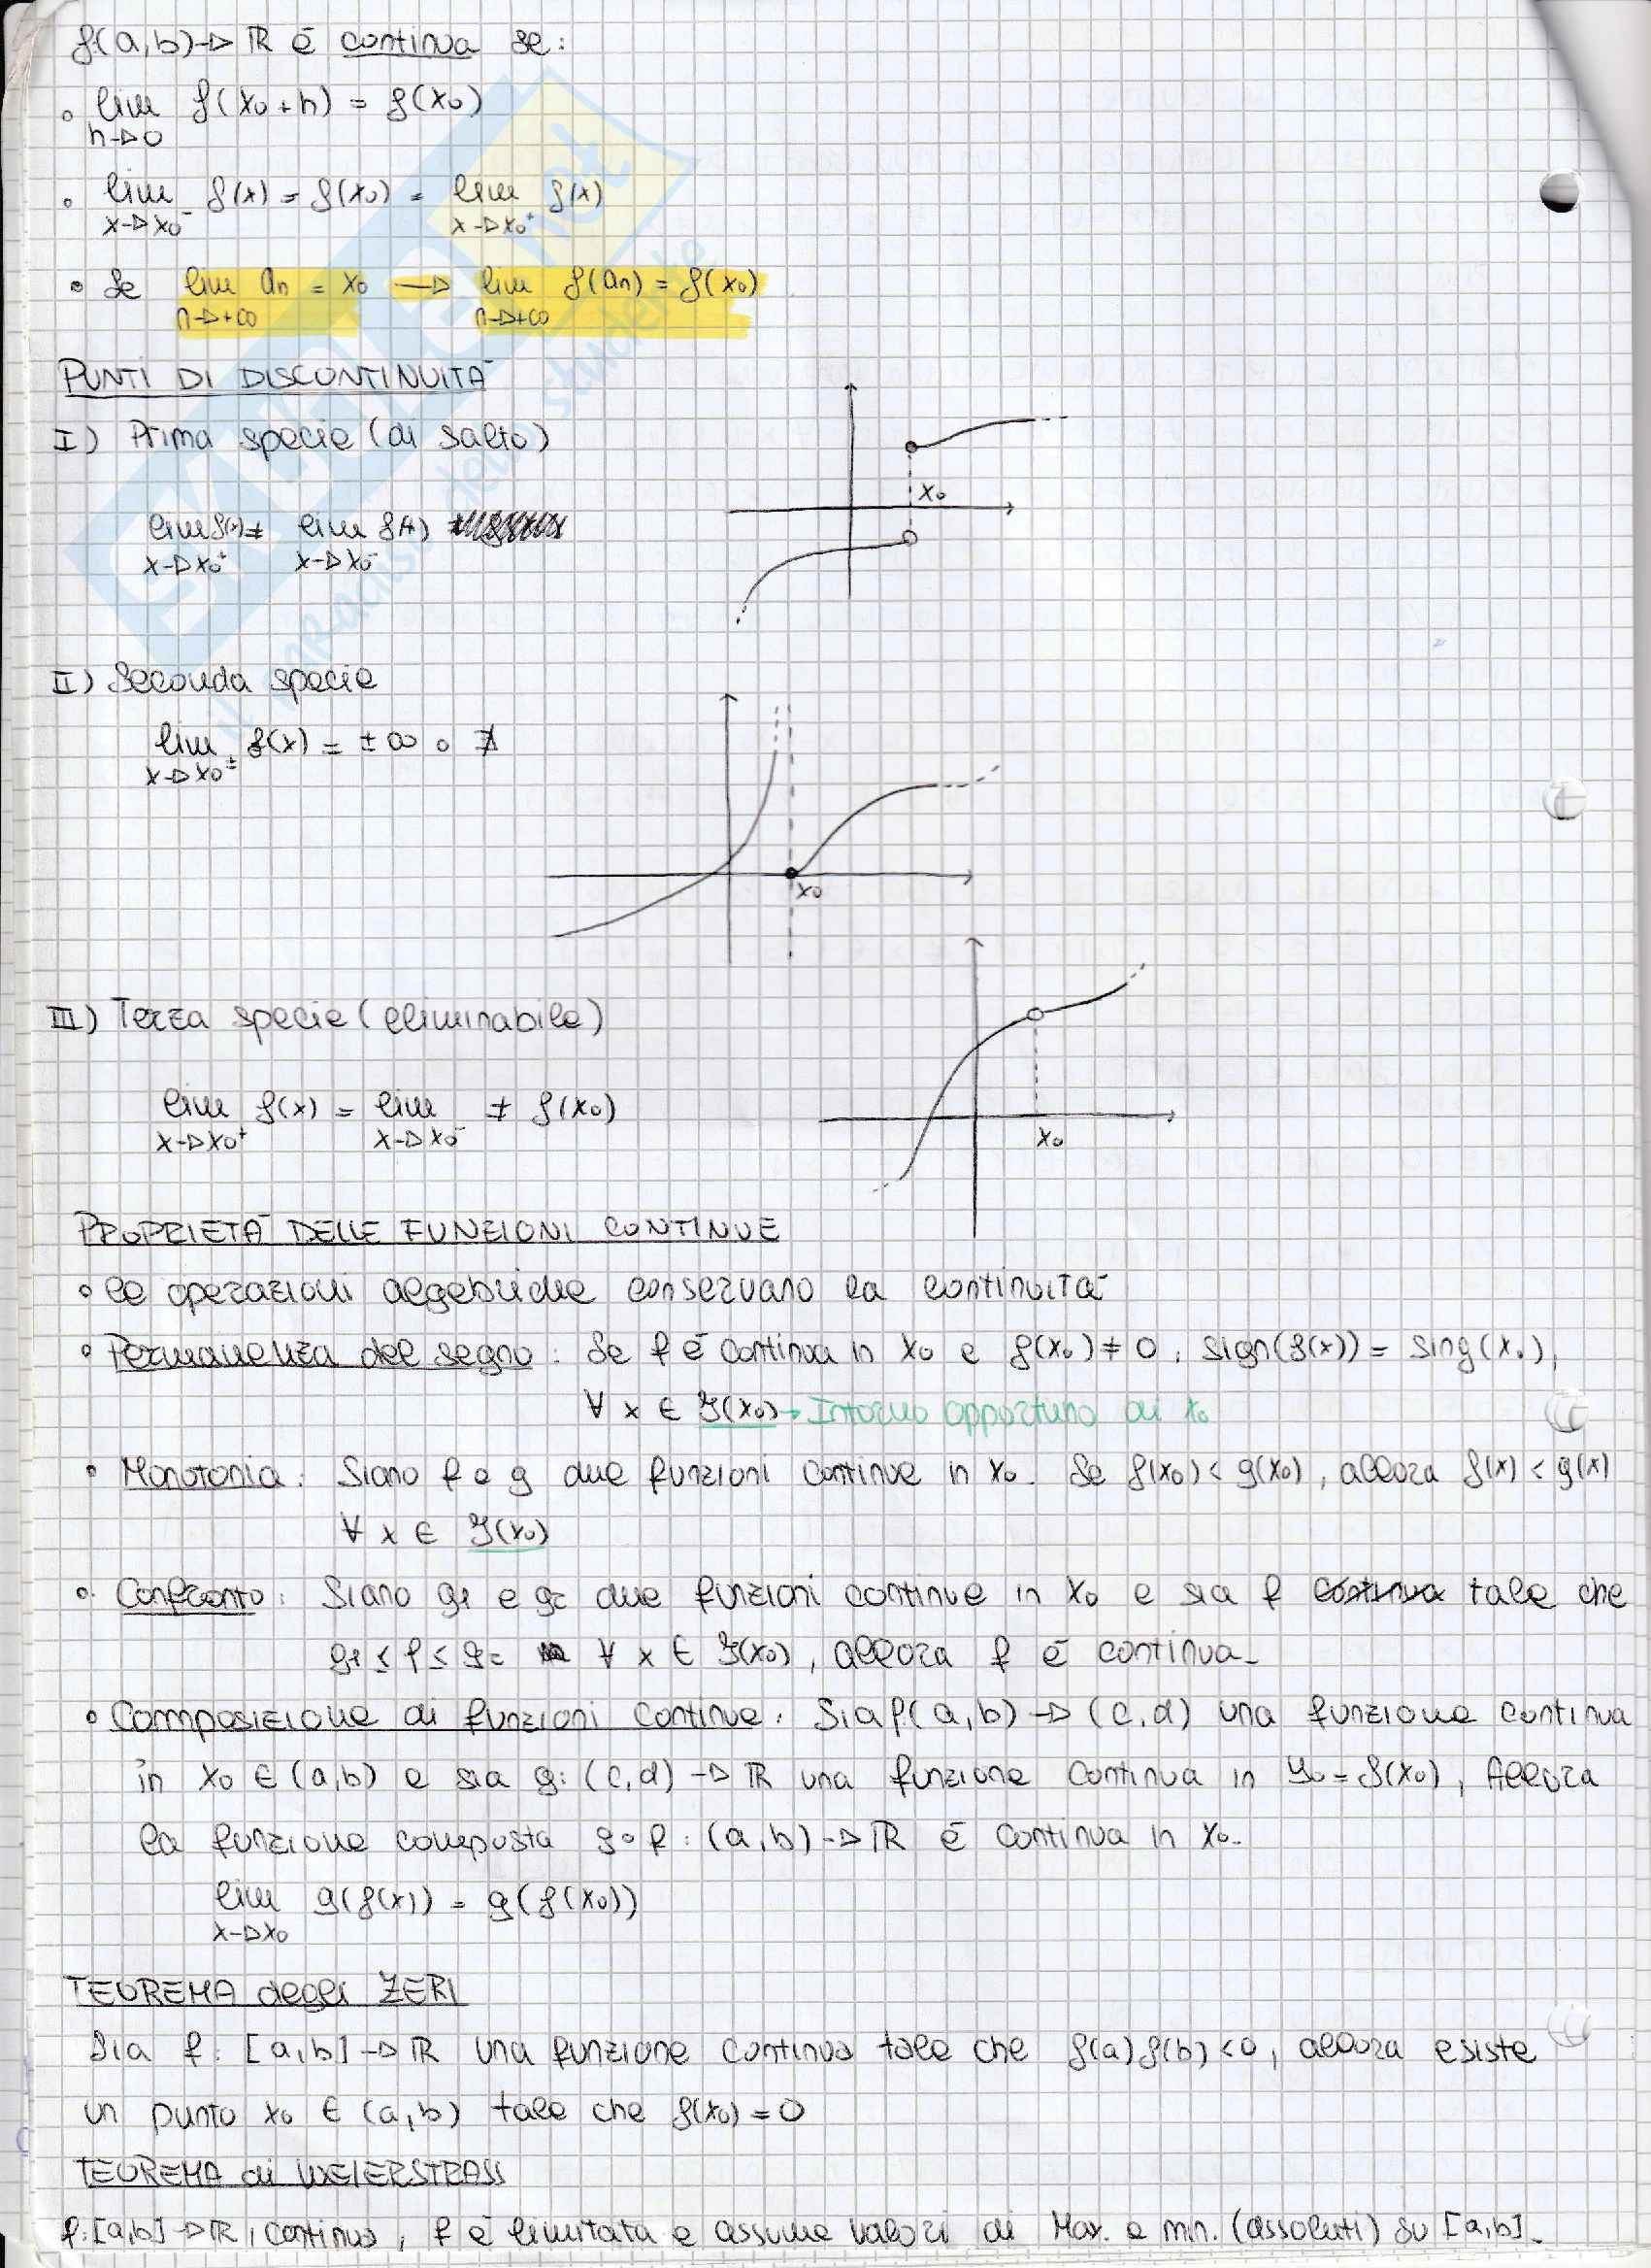 f(a,b)→ℝ è continua se:
• lim f(x₀+h) = f(x₀)
h→0
• lim f(x) = f(x₀) = lim f(x)
x→x₀⁻ x→x₀⁺
• Se lim an = x₀ → lim f(an) = f(x₀)
n→+∞ n→+∞
PUNTI DI DISCONTINUITÀ
I) Prima specie (di salto)
x₀
lim f(x) ≠ lim f(x)
x→x₀⁺ x→x₀⁻
II) Seconda specie
lim f(x) = ±∞ o ∄
x→x₀±
x₀
III) Terza specie (eliminabile)
lim f(x) = lim ≠ f(x₀)
x→x₀⁺ x→x₀⁻
x₀
PROPRIETÀ DELLE FUNZIONI CONTINUE
• le operazioni algebriche conservano la continuità
• Permanenza del segno: Se f è continua in x₀ e f(x₀) ≠ 0, sign(f(x)) = sing(x₀),
∀ x ∈ I(x₀) → Intorno opportuno di x₀
• Monotonia: Siano f e g due funzioni continue in x₀. Se f(x₀) < g(x₀), allora f(x) < g(x)
∀ x ∈ I(x₀)
• Confronto: Siano g₁ e g₂ due funzioni continue in x₀ e sia f continua tale che
g₁ ≤ f ≤ g₂ ∀ x ∈ I(x₀), allora f è continua.
• Composizione di funzioni continue: Sia f(a,b)→(c,d) una funzione continua
in x₀ ∈ (a,b) e sia g: (c,d) → ℝ una funzione continua in y₀ = f(x₀), Allora
la funzione composta g∘f: (a,b)→ℝ è continua in x₀.
lim g(f(x)) = g(f(x₀))
x→x₀
TEOREMA degli ZERI
Sia f: [a,b]→ℝ una funzione continua tale che f(a)f(b)<0, allora esiste
un punto x₀ ∈ (a,b) tale che f(x₀) = 0
TEOREMA di WEIERSTRASS
f: [a,b]→ℝ, continua, f è limitata e assume valori di Max. e min. (assoluti) su [a,b].